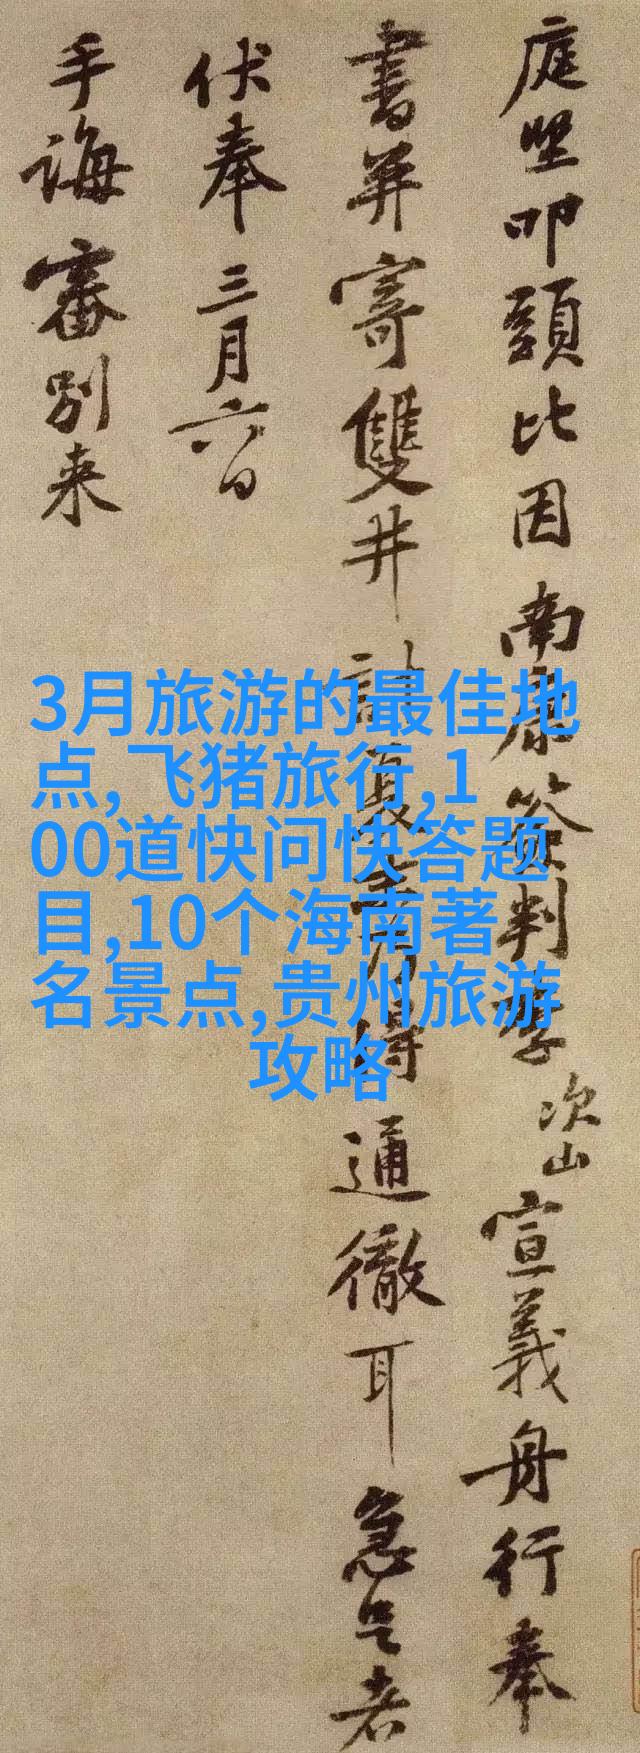 庭堅叩頭比因南康簽判李次山宣義舟行奉
書并寄雙井計夏得通徹耳急足者
伏奉三月六日
手誨審別来
3月旅游的最佳地
点,飞猪旅行,1
00道快问快答题
目,10个海南著
名景点,贵州旅游
攻略